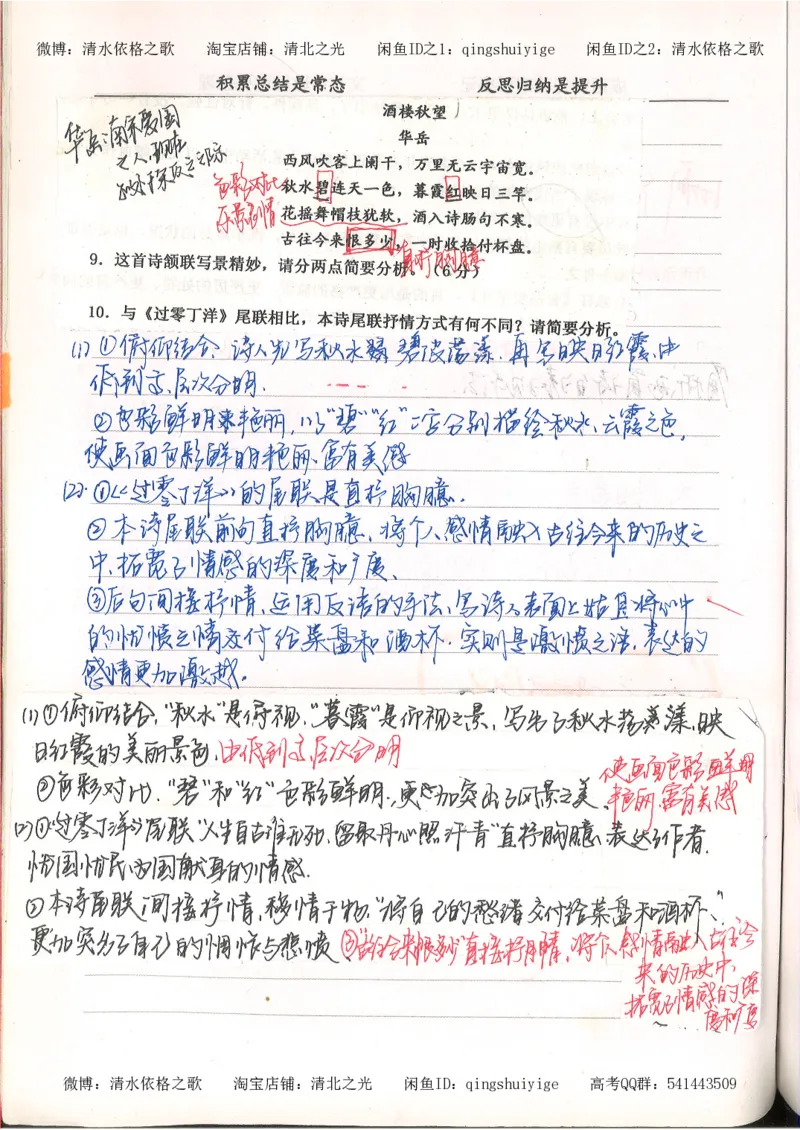 微博：清水依格之歌 淘宝店铺：清北之光 闲鱼ID之1：qingshuiyige 闲鱼ID之2：清水依格之歌
积累总结是常态 反思归纳是提升
酒楼秋望
华岳
华岳：南宋爱国
之人，
西风吹客上阑干，万里无云宇宙宽。
色彩对比
秋水碧连天一色，暮霞红映日三竿。
乐景写情
花摇舞帽枝犹软，酒入诗肠句不寒。
古往今来恨多少，一时收拾付杯盘。
直抒胸臆
9．这首诗颔联写景精妙，请分两点简要分析。（6分）
10．与《过零丁洋》尾联相比，本诗尾联抒情方式有何不同？请简要分析。
(1) ①俯仰结合，诗人先写秋水 碧波荡漾，再写映日红霞，由
低到高，层次分明．
②色彩鲜明艳丽，以"碧""红"二字分别描绘秋水、云霞之色，
使画面色彩鲜明艳丽、富有美感
(2)．①《过零丁洋》的尾联是直抒胸臆．
②本诗尾联前句直抒胸臆，将个人感情融入古往今来的历史之
中，拓宽了情感的深度和广度、
③后句间接抒情，运用反语的手法，写诗人表面上姑且将心中
的忧愤之情交付给菜盘和酒杯，实则是激愤之语，表达的
感情更加激越。
(1)①俯仰结合，"秋水"是俯视，"暮霞"是仰视之景，写出了秋水荡漾，映
日红霞的美丽景色，由低到高，层次分明
②色彩对比，"碧"和"红"色彩鲜明，更加突出了风景之美．
使画面色彩鲜明
艳丽，富有美感
(2)①《过零丁洋》尾联"人生自古谁无死，留取丹心照汗青"直抒胸臆，表达了作者
忧国忧民，为国献身的情感．
②本诗尾联间接抒情，移情于物，"将自己的愁绪交付给菜盘和酒杯"，
更加突出了自己的惆怅与悲愤 ③"古往今来恨多少"直接抒情，将个人感情融入古往今
来的历史中，
拓宽了情感的深
度和广度
微博：清水依格之歌 淘宝店铺：清北之光 闲鱼ID：qingshuiyige 高考QQ群：541443509